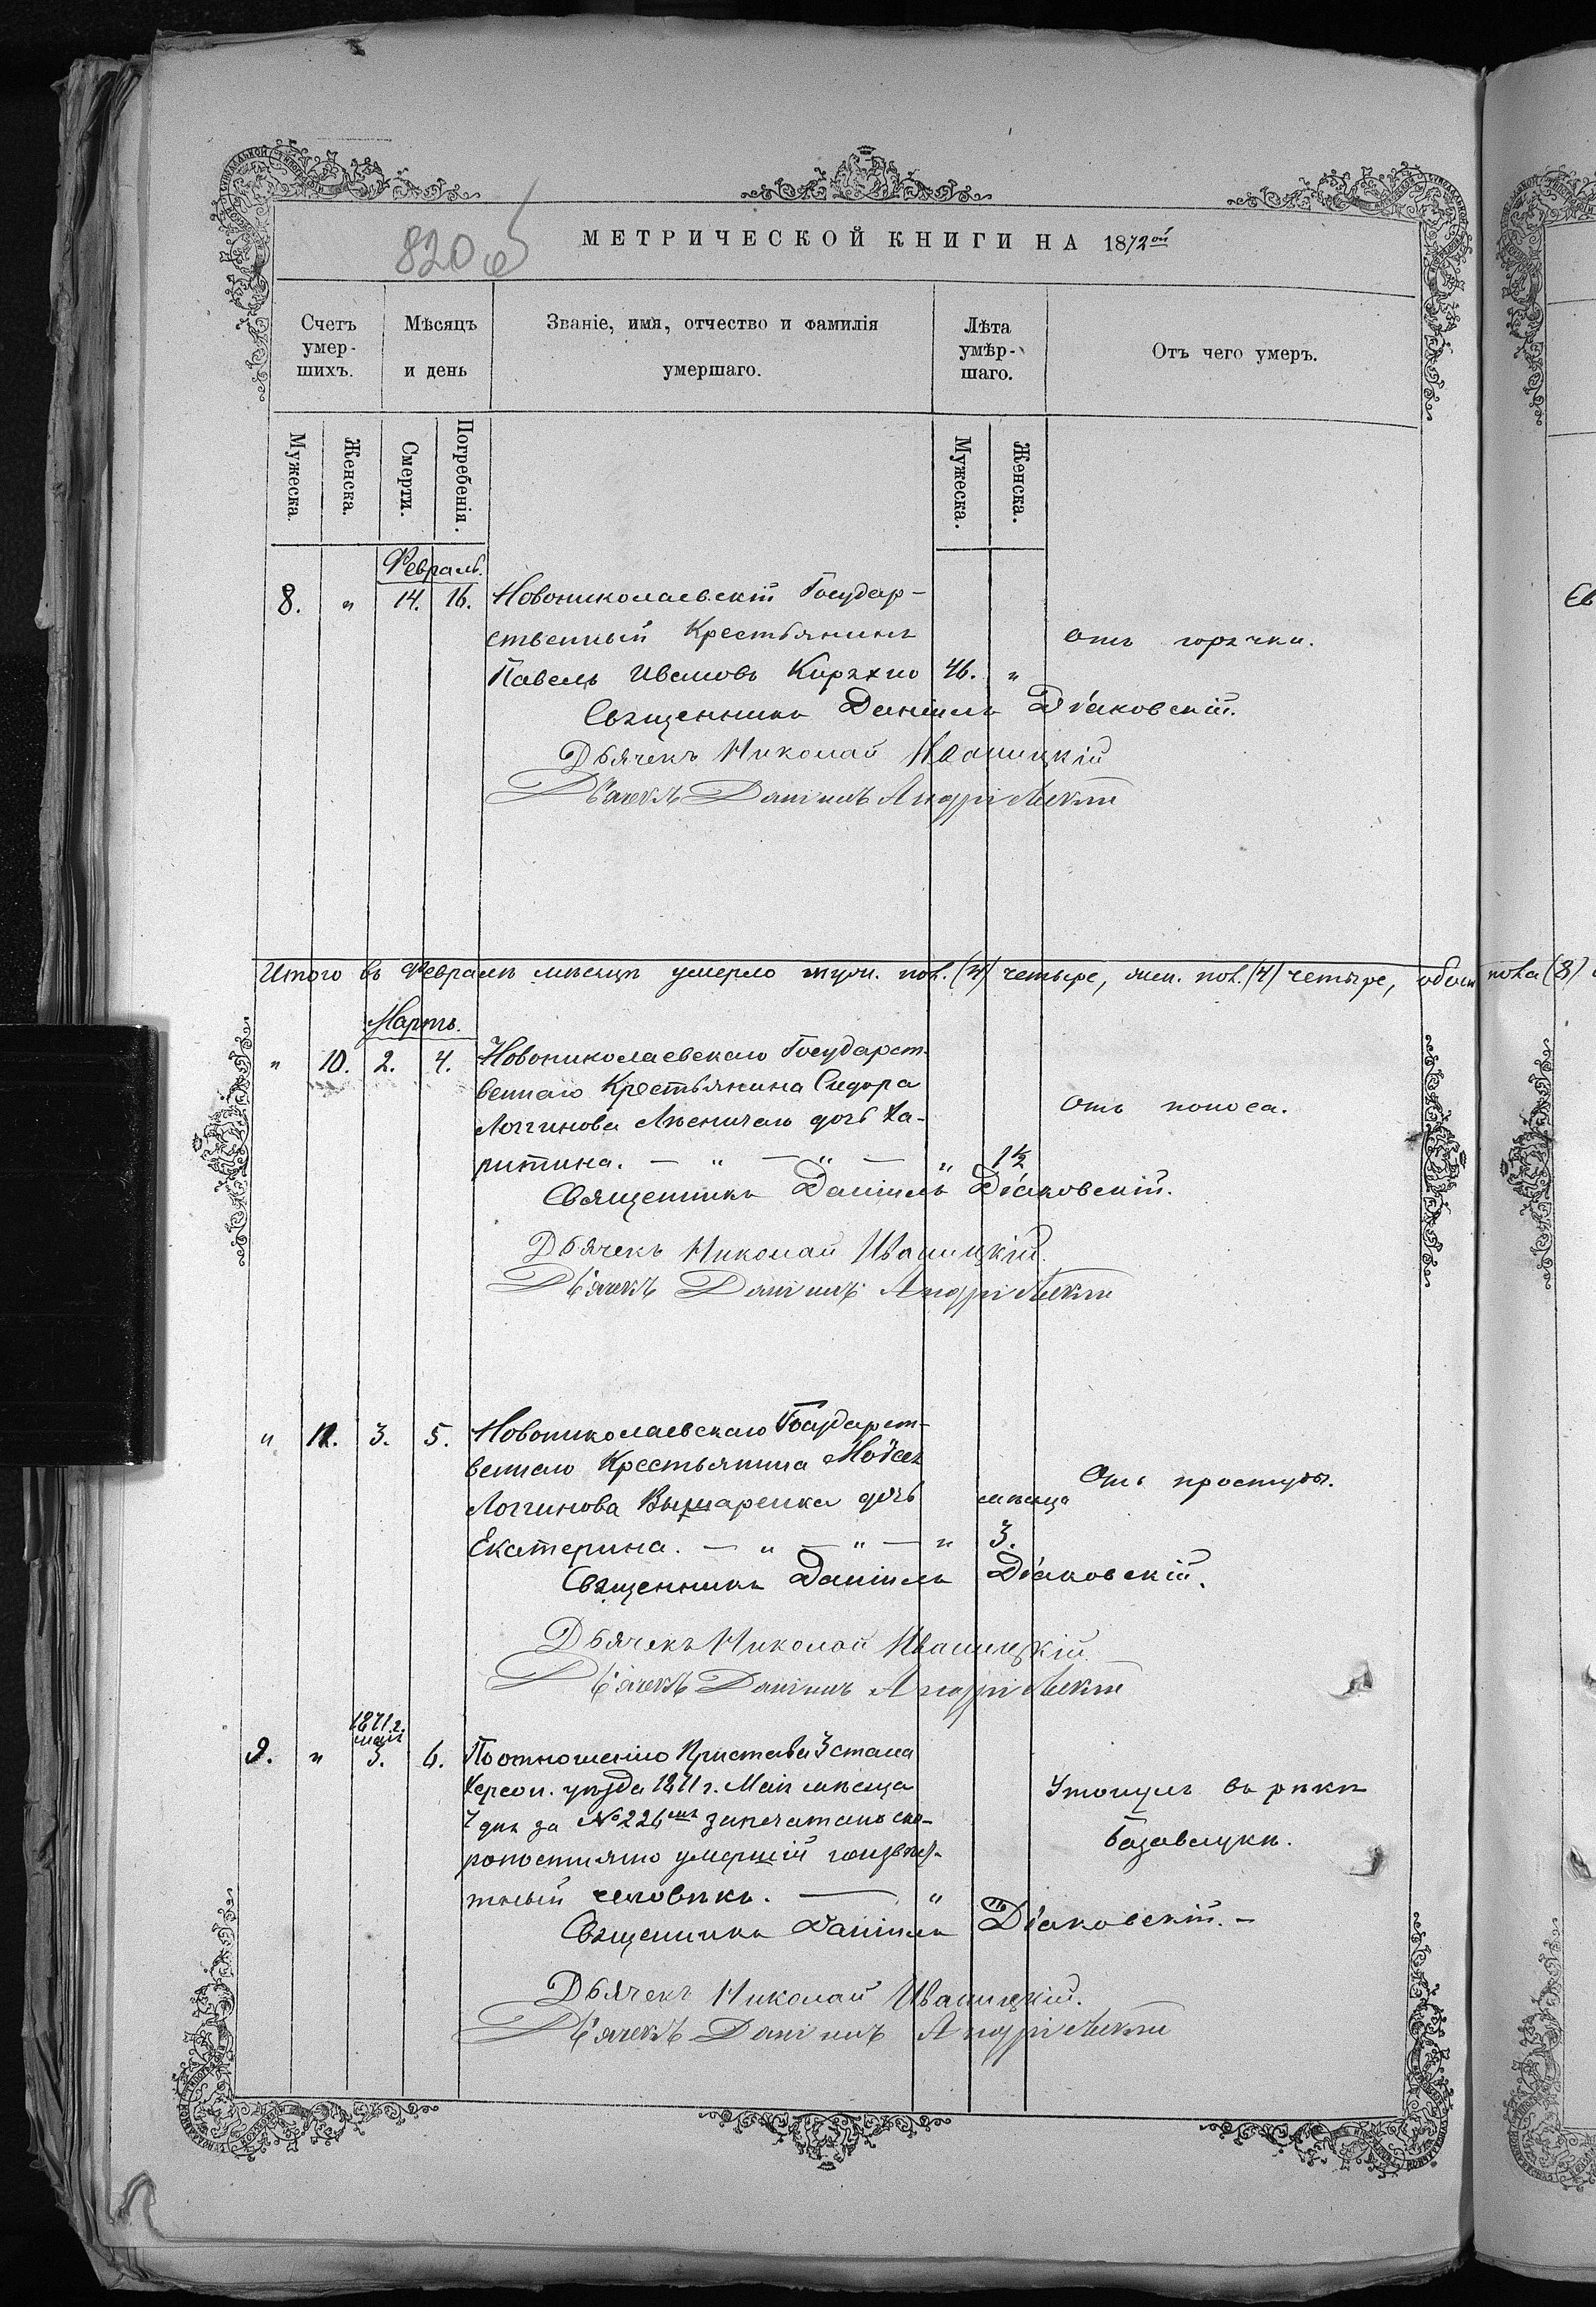 820 об
МЕТРИЧЕСКОЙ КНИГИ НА 1872ой
Счетъ умер-шихъ.
Мѣсяцъ и день
Званіе, имя, отчество и фамилія умершаго.
Лѣта умѣр-шаго.
Отъ чего умеръ.
Мужеска.
Женска.
Смерти.
Погребенія.
Мужеска.
Женска.
Февраль.
8. " 14. 16. Новониколаевскій Государ-
ственный Крестьянинъ Отъ горячки.
Павелъ Ивановъ 46. "
Священникъ Даніилъ Діаковскій.
Дьячекъ Николай Иваницкій
Дьячекъ Даніилъ Андріевскій
Итого въ Февралѣ мѣсяцѣ умерло муж. пол. (4) четыре, жен. пол. (4) четыре, обоего пола (8)
Мартъ.
" 10. 2. 4. Новониколаевскаго Государст-
веннаго Крестьянина Сидора
Логгинова дочь Ха- Отъ поноса.
ритина. — " — " — " 1½
Священникъ Даніилъ Діаковскій.
Дьячекъ Николай Иваницкій.
Дьячекъ Даніилъ Андріевскій
" 11. 3. 5. Новониколаевскаго Государст-
веннаго Крестьянина Моѵсея
Логгинова дочь мѣсяца Отъ простуды.
Екатерина. — " — " — " 3.
Священникъ Даніилъ Діаковскій.
Дьячекъ Николай Иваницкій
Дьячекъ Даніилъ Андріевскій
1871 г.
мая
9. " 3. 6. По отношенію Пристава 3 стана
Херсон. уѣзда 1871 г. Маія мѣсяца Утонулъ въ рѣкѣ
7 дня за № 226мъ запечатанъ ско- Базавлукѣ.
ропостижно умершій неизвѣс-
тный человѣкъ. — "
Священникъ Даніилъ Діаковскій. —
Дьячекъ Николай Иваницкій.
Дьячекъ Даніилъ Андріевскій